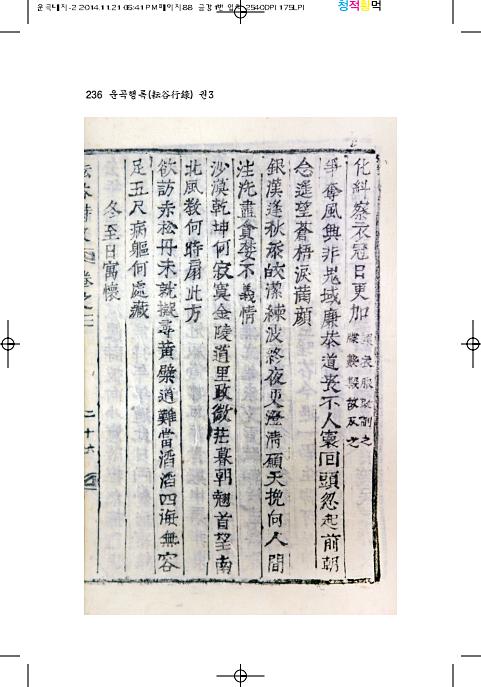 운곡내지-2 2014.11.21 05:41 PM 페이지88
2540DPI 175LPI
청적황먹
236 운곡행록(耘谷行錄) 권3
化糾察衣冠日更加
爭奪風興非兎域廉恭道喪不人寰回頭忽起前朝
念遥望蒼梧淚滿顔
銀漢逢秋添皎潔練波終夜更澄清願天挽向人間
注洗盡貪婪不義情
沙漠乾坤何寂寞金陵道里政微茫暮朝翹首望南
北風教何時扇此方
欲訪赤松丹未就擬尋黃檗道難當滔滔四海無容
足五尺病軀何處藏
冬至日寓懷
卷之三
二十六